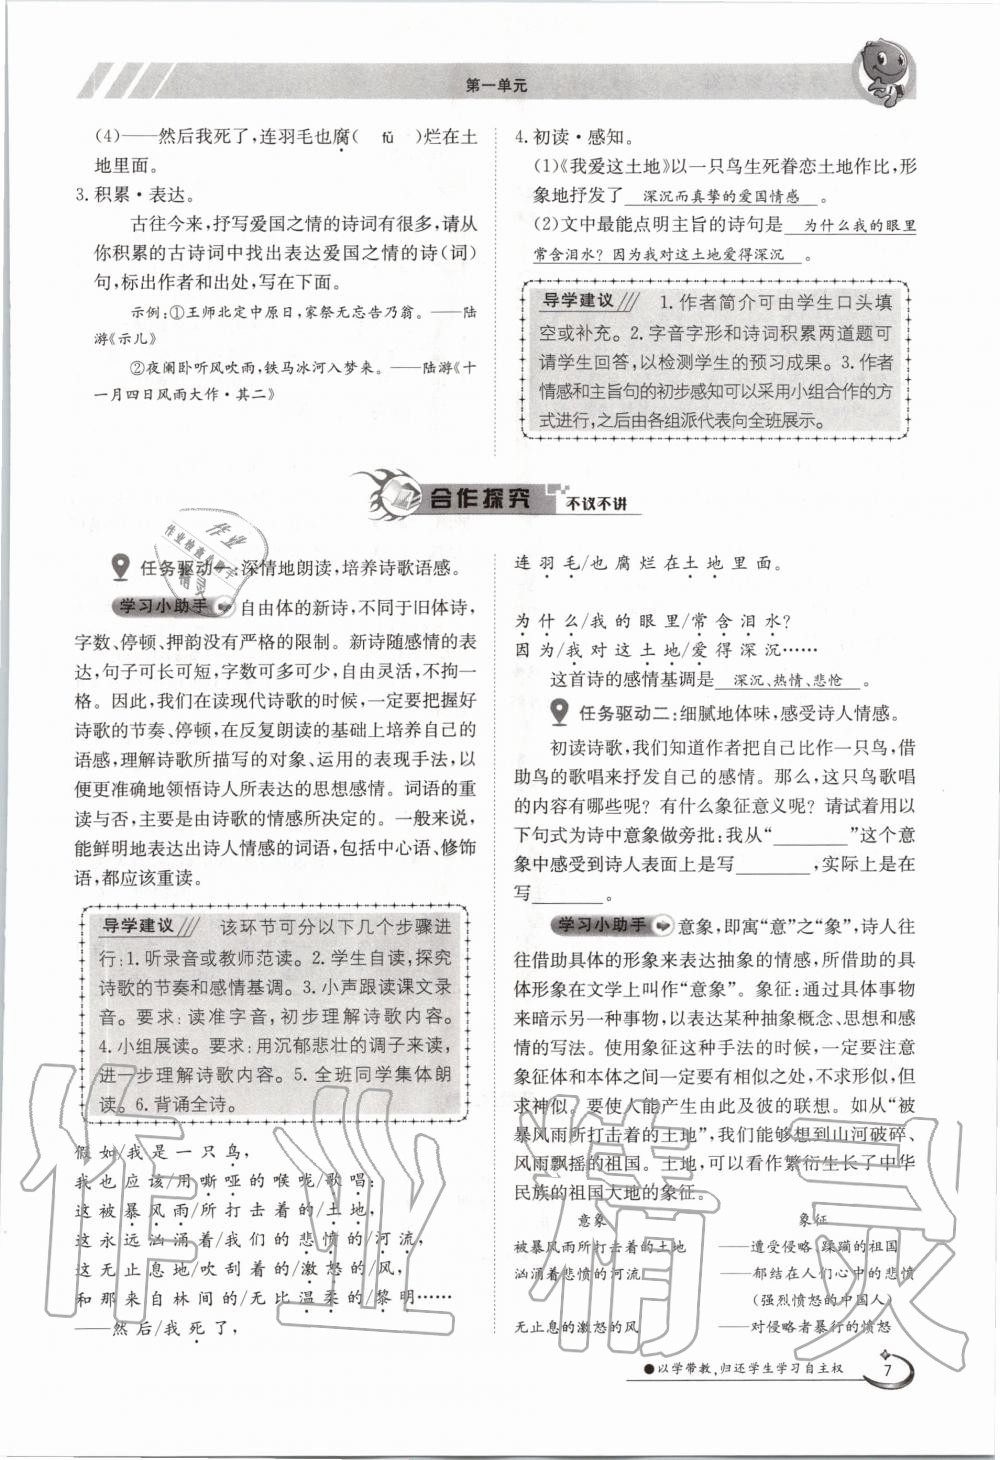 第一单元
(4)——然后我死了,连羽毛也腐( fǔ )烂在土
地里面。
3. 积累·表达。
古往今来,抒写爱国之情的诗词有很多,请从
你积累的古诗词中找出表达爱国之情的诗(词)
句,标出作者和出处,写在下面。
示例:①王师北定中原日,家祭无忘告乃翁。——陆
游《示儿》
②夜阑卧听风吹雨,铁马冰河入梦来。——陆游《十
一月四日风雨大作·其二》
4. 初读·感知。
(1)《我爱这土地》以一只鸟生死眷恋土地作比,形
象地抒发了 深沉而真挚的爱国情感 。
(2)文中最能点明主旨的诗句是 为什么我的眼里
常含泪水? 因为我对这土地爱得深沉 。
导学建议 1. 作者简介可由学生口头填
空或补充。2. 字音字形和诗词积累两道题可
请学生回答,以检测学生的预习成果。3. 作者
情感和主旨句的初步感知可以采用小组合作的方
式进行,之后由各组派代表向全班展示。
合作探究 不议不讲
任务驱动一:深情地朗读,培养诗歌语感。
学习小助手 自由体的新诗,不同于旧体诗,
字数、停顿、押韵没有严格的限制。新诗随感情的表
达,句子可长可短,字数可多可少,自由灵活,不拘一
格。因此,我们在读现代诗歌的时候,一定要把握好
诗歌的节奏、停顿,在反复朗读的基础上培养自己的
语感,理解诗歌所描写的对象、运用的表现手法,以
便更准确地领悟诗人所表达的思想感情。词语的重
读与否,主要是由诗歌的情感所决定的。一般来说,
能鲜明地表达出诗人情感的词语,包括中心语、修饰
语,都应该重读。
导学建议 该环节可分以下几个步骤进
行:1. 听录音或教师范读。2. 学生自读,探究
诗歌的节奏和感情基调。3. 小声跟读课文录
音。要求:读准字音,初步理解诗歌内容。
4. 小组展读。要求:用沉郁悲壮的调子来读,
进一步理解诗歌内容。5. 全班同学集体朗
读。6. 背诵全诗。
假如/我是一只鸟,
我也应该/用嘶哑的喉咙/歌唱:
这被暴风雨/所打击着的/土地,
这永远汹涌着/我们的悲愤的/河流,
这无止息地/吹刮着的/激怒的/风,
和那来自林间的/无比温柔的/黎明……
——然后/我死了,
连羽毛/也腐烂在土地里面。
为什么/我的眼里/常含泪水?
因为/我对这土地/爱得深沉……
这首诗的感情基调是 深沉、热情、悲怆 。
任务驱动二:细腻地体味,感受诗人情感。
初读诗歌,我们知道作者把自己比作一只鸟,借
助鸟的歌唱来抒发自己的感情。那么,这只鸟歌唱
的内容有哪些呢? 有什么象征意义呢? 请试着用以
下句式为诗中意象做旁批:我从“________”这个意
象中感受到诗人表面上是写________,实际上是在
写________。
学习小助手 意象,即寓“意”之“象”,诗人往
往借助具体的形象来表达抽象的情感,所借助的具
体形象在文学上叫作“意象”。象征:通过具体事物
来暗示另一种事物,以表达某种抽象概念、思想和感
情的写法。使用象征这种手法的时候,一定要注意
象征体和本体之间一定要有相似之处,不求形似,但
求神似。要使人能产生由此及彼的联想。如从“被
暴风雨所打击着的土地”,我们能够想到山河破碎、
风雨飘摇的祖国。土地,可以看作繁衍生长了中华
民族的祖国大地的象征。
意象 象征
被暴风雨所打击着的土地 ——遭受侵略、蹂躏的祖国
汹涌着悲愤的河流 ——郁结在人们心中的悲愤
(强烈愤怒的中国人)
无止息的激怒的风 ——对侵略者暴行的愤怒
●以学带教,归还学生学习自主权 7
作业精灵
作业
作业检查小助手
精灵